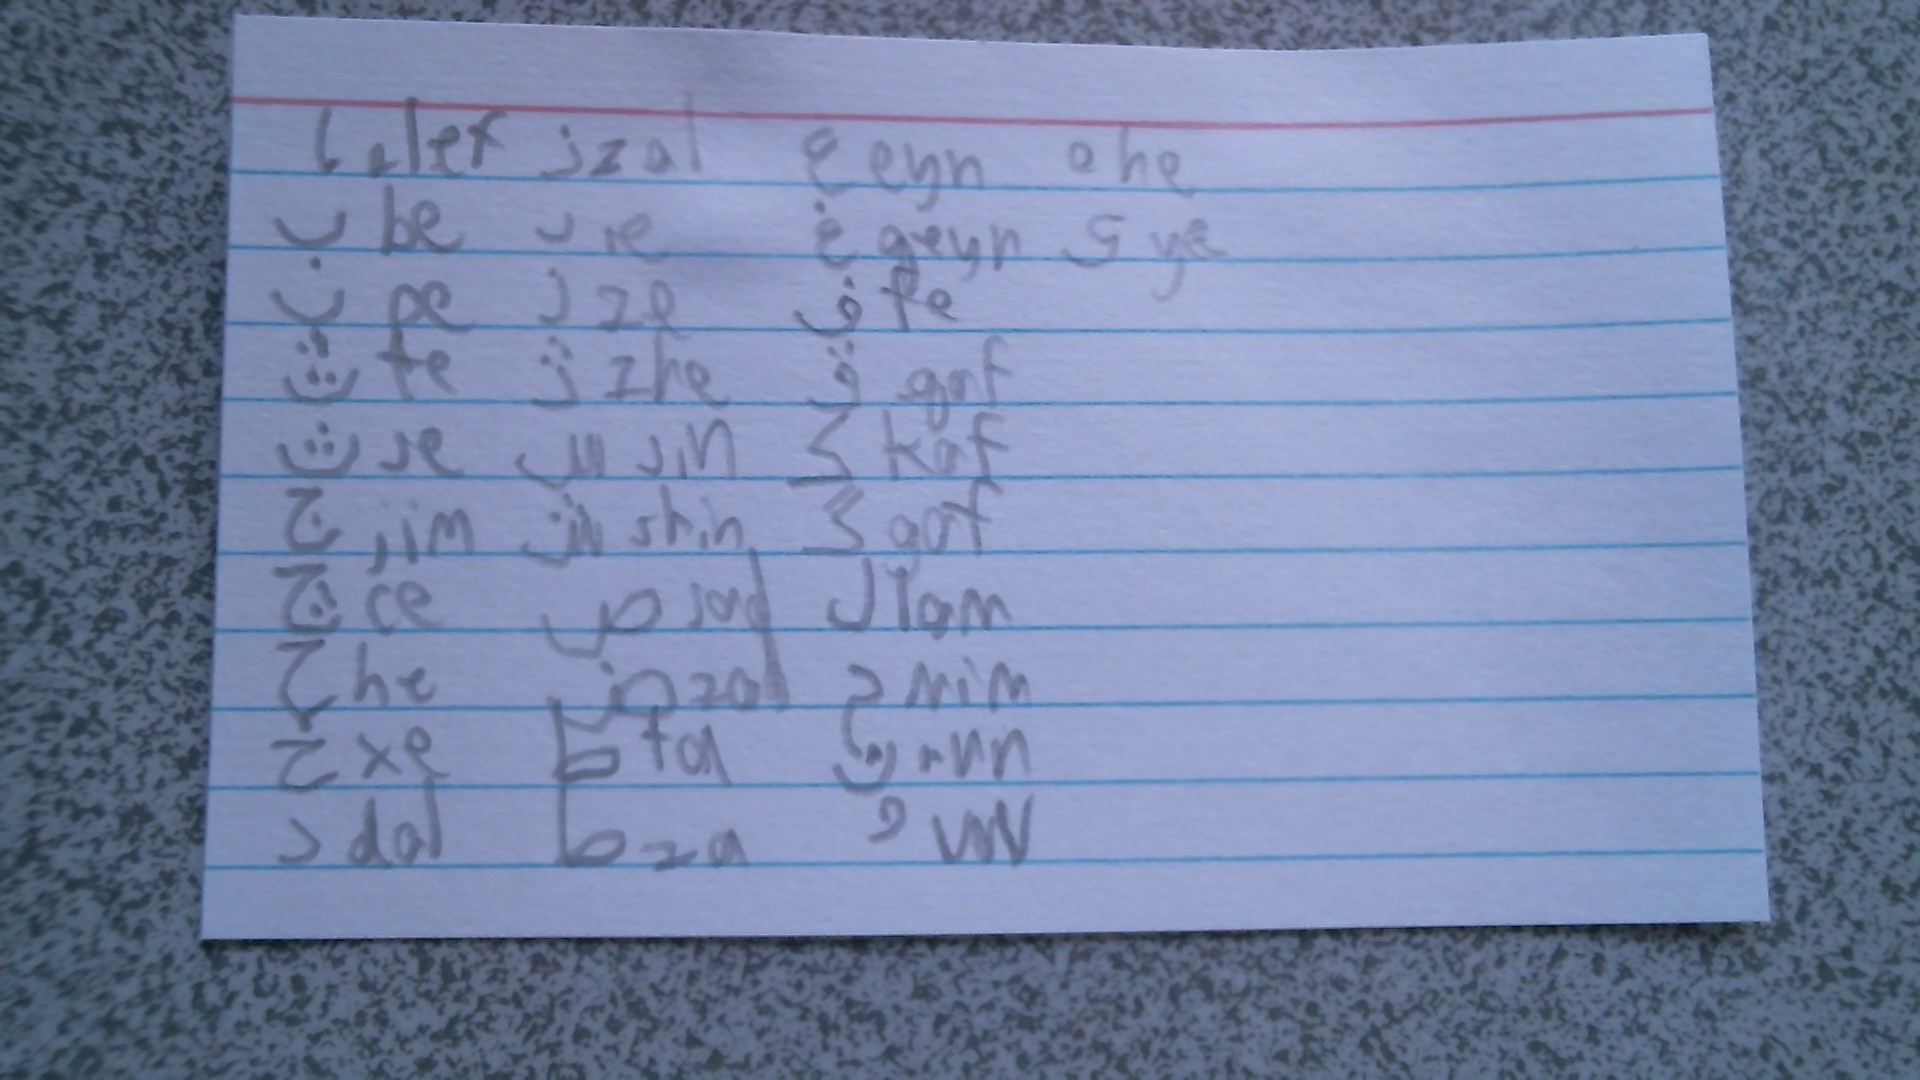 ا alef ز zal ع eyn ه he
ب be ر re غ geyn ی ye
پ pe ز ze ف fe
ث te ژ zhe ق gaf
ث se س sin ک kaf
ج jim ش shin گ gaf
چ ce ص sad ل lam
ح he ض zad م mim
خ xe ط ta ن nun
د dal ط za و vav